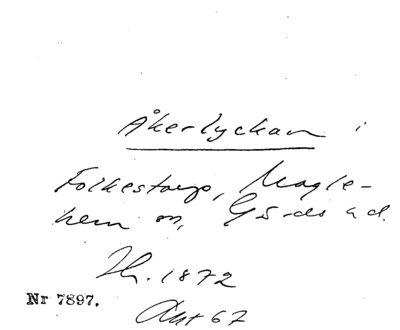 Åkerlyckan i
Folkestorp, Magle-
hem sn, Gärds hd.
Th. 1872
Nr 7897.
Akt 67